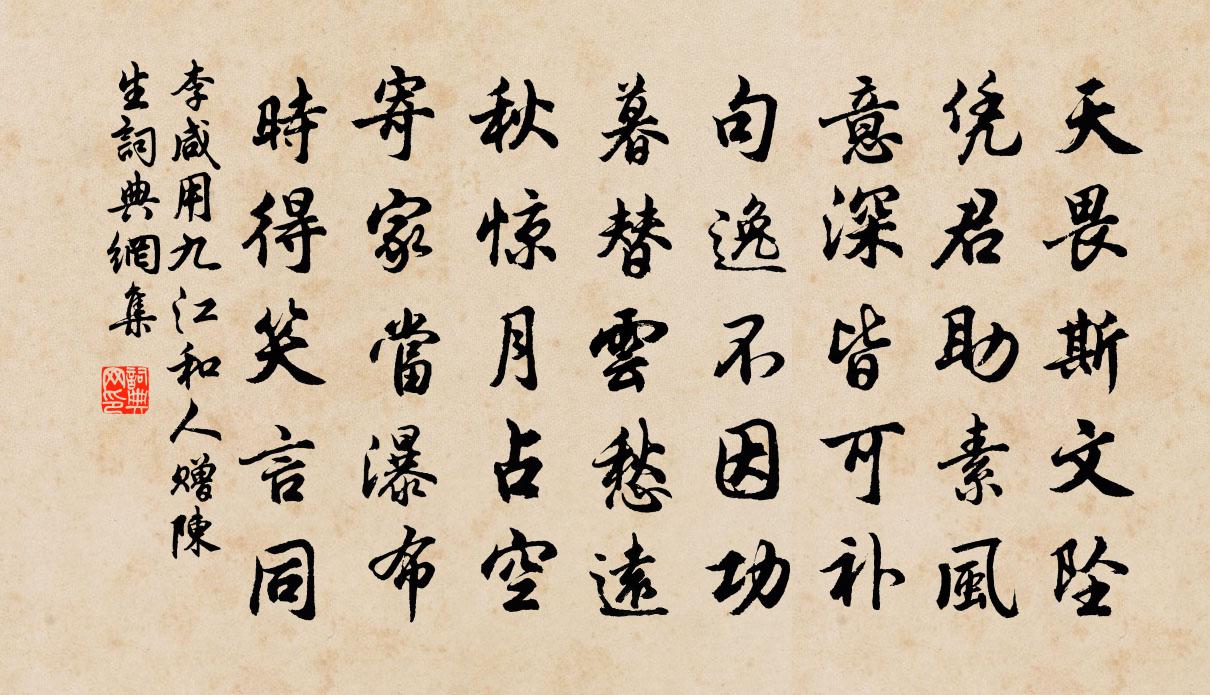 天畏斯文坠
凭君助素風
意深皆可补
句逸不因功
暮替雲愁遠
秋惊月占空
寄家當瀑布
時得笑言同
李咸用九江和人赠陳
生詞典網集
詞典网印